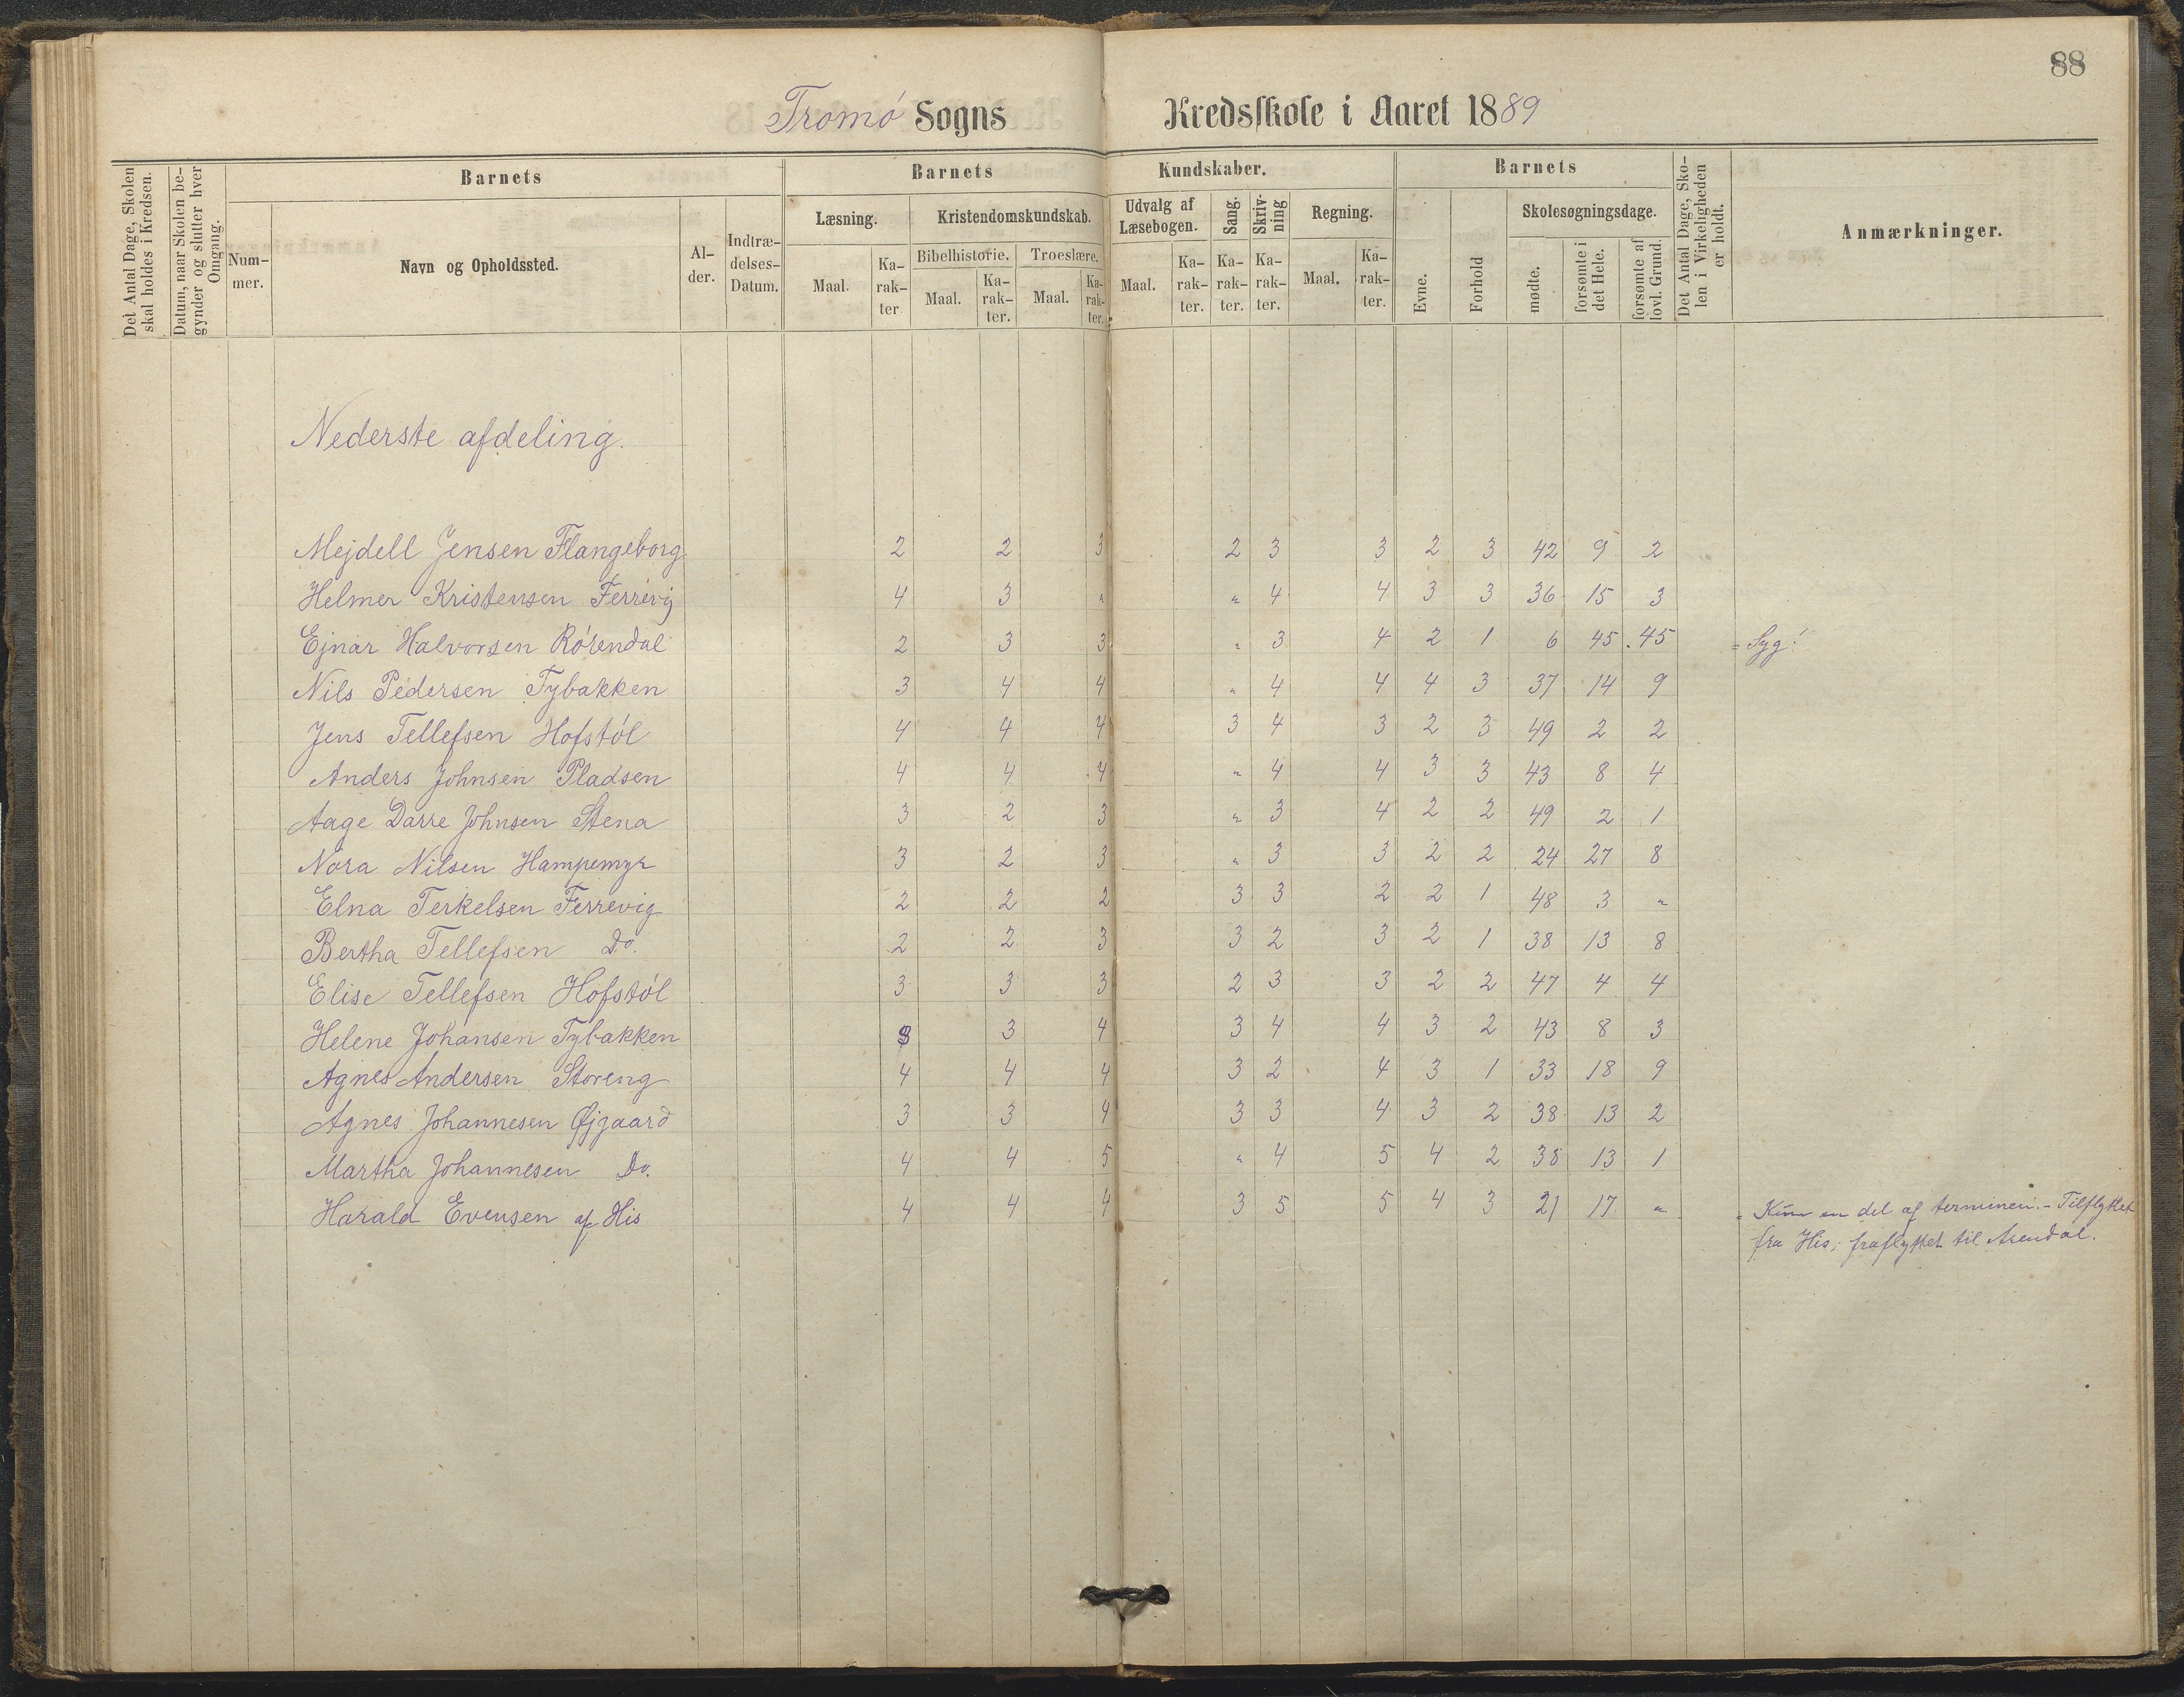 88
Tromø Sogns Kredsskole i Aaret 1889
Det Antal Dage, Skolen skal holdes i Kredsen.
Datum, naar Skolen begynder og slutter hver Omgang.
Barnets
Nummer.
Navn og Opholdssted.
Alder.
Indtrædelses-Datum.
Barnets Kundskaber.
Læsning.
Maal.
Karakter
Kristendomskundskab.
Bibelhistorie.
Maal.
Karakter.
Troeslære.
Maal.
Karakter.
Udvalg af Læsebogen.
Maal.
Karakter.
Sang.
Karakter.
Skrivning
Karakter.
Regning.
Maal.
Karakter.
Barnets
Evne.
Forhold
Skolesøgningsdage.
mødte.
forsømte i det Hele.
forsømte af lovl. Grund.
Det Antal Dage, Skolen i Virkeligheden er holdt.
Anmærkninger.
Nederste afdeling.
Mejdell Jensen Flangeborg 2 2 3 2 3 3 2 3 42 9 2
Helmer Kristensen Ferrevig 4 3 " " 4 4 3 3 36 15 3
Ejnar Halvorsen Rósendal 2 3 3 " 3 4 2 1 6 45 45 = Syg!
Nils Pedersen Tybakken 3 4 4 " 4 4 4 3 37 14 9
Jens Tellefsen Hofstól 4 4 4 3 4 3 2 3 49 2 2
Anders Johnsen Pladsen 4 4 4 " 4 4 3 3 43 8 4
Aage Darre Johnsen Stena 3 2 3 " 3 4 2 2 49 2 1
Nora Nilsen Hampemyr 3 2 3 " 3 3 2 2 24 27 8
Elna Terkelsen Ferrevig 2 2 2 3 3 2 2 1 48 3 "
Bertha Tellefsen Do. 2 2 3 3 2 3 2 1 38 13 8
Elise Tellefsen Hofstól 3 3 3 2 3 3 2 2 47 4 4
Helene Johansen Tybakken 3 3 4 3 4 4 3 2 43 8 3
Agnes Andersen Storeng 4 4 4 3 2 4 3 1 33 18 9
Agnes Johannesen Øjgaard 3 3 4 3 3 4 3 2 38 13 2
Martha Johannesen Do. 4 4 5 " 4 5 4 2 38 13 1
Harald Evensen af His 4 4 4 3 5 5 4 3 21 17 " = Kun en del af terminen. - Tilflyttet
fra His; fraflyttet til Arendal.